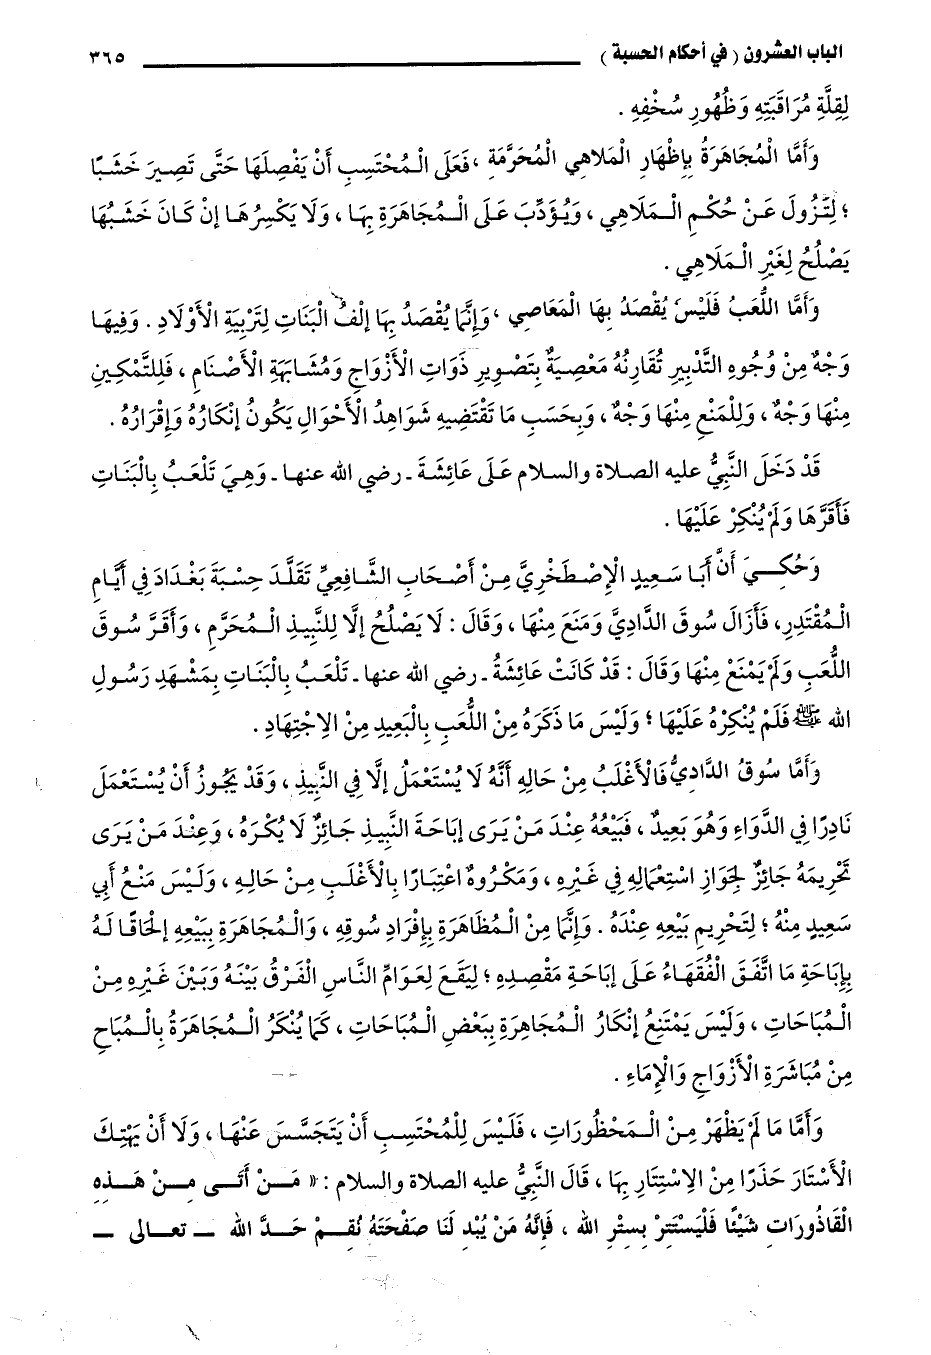 الباب العشرون ( في أحكام الحسبة ) ٣٦٥
لِقِلَّةِ مُرَاقَبَتِهِ وَظُهُورِ سُخْفِهِ .
وَأَمَّا الْمُجَاهَرَةُ بِإِظْهَارِ الْمَلَاهِي الْمُحَرَّمَةِ ، فَعَلَى الْمُحْتَسِبِ أَنْ يَفْصِلَهَا حَتَّى تَصِيرَ خَشَبًا
؛ لِتَزُولَ عَنْ حُكْمِ الْمَلَاهِي ، وَيُؤَدِّبَ عَلَى الْمُجَاهَرَةِ بِهَا ، وَلَا يَكْسِرُهَا إِنْ كَانَ خَشَبُهَا
يَصْلُحُ لِغَيْرِ الْمَلَاهِي .
وَأَمَّا اللُّعَبُ فَلَيْسَ يُقْصَدُ بِهَا الْمَعَاصِي ، وَإِنَّمَا يُقْصَدُ بِهَا إلْفُ الْبَنَاتِ لِتَرْبِيَةِ الْأَوْلَادِ . وَفِيهَا
وَجْهٌ مِنْ وُجُوهِ التَّدْبِيرِ تُقَارِنُهُ مَعْصِيَةٌ بِتَصْوِيرِ ذَوَاتِ الْأَرْوَاحِ وَمُشَابَهَةِ الْأَصْنَامِ ، فَلِلتَّمْكِينِ
مِنْهَا وَجْهٌ ، وَلِلْمَنْعِ مِنْهَا وَجْهٌ ، وَبِحَسَبِ مَا تَقْتَضِيهِ شَوَاهِدُ الْأَحْوَالِ يَكُونُ إنْكَارُهُ وَإِقْرَارُهُ .
قَدْ دَخَلَ النَّبِيُّ عليه الصلاة والسلام عَلَى عَائِشَةَ ـ رضي الله عنها ـ وَهِيَ تَلْعَبُ بِالْبَنَاتِ
فَأَقَرَّهَا وَلَمْ يُنْكِرْ عَلَيْهَا .
وَحُكِيَ أَنَّ أَبَا سَعِيدٍ الْإِصْطَخْرِيَّ مِنْ أَصْحَابِ الشَّافِعِيِّ تَقَلَّدَ حِسْبَةَ بَغْدَادَ فِي أَيَّامِ
الْمُقْتَدِرِ، فَأَزَالَ سُوقَ الدَّادِيِّ وَمَنَعَ مِنْهَا ، وَقَالَ : لَا يَصْلُحُ إلَّا لِلنَّبِيذِ الْمُحَرَّمِ ، وَأَقَرَّ سُوقَ
اللُّعَبِ وَلَمْ يَمْنَعْ مِنْهَا وَقَالَ : قَدْ كَانَتْ عَائِشَةُ ـ رضي الله عنها ـ تَلْعَبُ بِالْبَنَاتِ بِمَشْهَدِ رَسُولِ
الله ﷺ فَلَمْ يُنْكِرْهُ عَلَيْهَا ؛ وَلَيْسَ مَا ذَكَرَهُ مِنْ اللُّعَبِ بِالْبَعِيدِ مِنْ الِاجْتِهَادِ .
وَأَمَّا سُوقُ الدَّادِيُّ فَالْأَغْلَبُ مِنْ حَالِهِ أَنَّهُ لَا يُسْتَعْمَلُ إلَّا فِي النَّبِيذِ ، وَقَدْ يَجُوزُ أَنْ يُسْتَعْمَلَ
نَادِرًا فِي الدَّوَاءِ وَهُوَ بَعِيدٌ ، فَبَيْعُهُ عِنْدَ مَنْ يَرَى إبَاحَةَ النَّبِيذِ جَائِزٌ لَا يُكْرَهُ ، وَعِنْدَ مَنْ يَرَى
تَحْرِيمَهُ جَائِزٌ لِجَوَازِ اسْتِعْمَالِهِ فِي غَيْرِهِ ، وَمَكْرُوهٌ اعْتِبَارًا بِالْأَغْلَبِ مِنْ حَالِهِ ، وَلَيْسَ مَنْعُ أَبِي
سَعِيدٍ مِنْهُ ؛ لِتَحْرِيمِ بَيْعِهِ عِنْدَهُ . وَإِنَّمَا مِنْ الْمُظَاهَرَةِ بِإِفْرَادِ سُوقِهِ ، وَالْمُجَاهَرَةِ بِبَيْعِهِ إلْحَاقًا لَهُ
بِإِبَاحَةِ مَا اتَّفَقَ الْفُقَهَاءُ عَلَى إبَاحَةِ مَقْصِدِهِ ؛ لِيَقَعَ لِعَوَامِّ النَّاسِ الْفَرْقُ بَيْنَهُ وَبَيْنَ غَيْرِهِ مِنْ
الْمُبَاحَاتِ ، وَلَيْسَ يَمْتَنِعُ إنْكَارُ الْمُجَاهَرَةِ بِبَعْضِ الْمُبَاحَاتِ ، كَمَا يُنْكَرُ الْمُجَاهَرَةُ بِالْمُبَاحِ
مِنْ مُبَاشَرَةِ الْأَزْوَاجِ وَالْإِمَاءِ .
وَأَمَّا مَا لَمْ يَظْهَرْ مِنْ الْمَحْظُورَاتِ ، فَلَيْسَ لِلْمُحْتَسِبِ أَنْ يَتَجَسَّسَ عَنْهَا ، وَلَا أَنْ يَهْتِكَ
الْأَسْتَارَ حَذَرًا مِنْ الِاسْتِتَارِ بِهَا ، قَالَ النَّبِيُّ عليه الصلاة والسلام : « مَنْ أَتَى مِنْ هَذِهِ
الْقَاذُورَاتِ شَيْئًا فَلْيَسْتَتِرْ بِسِتْرِ الله ، فَإِنَّهُ مَنْ يُبْدِ لَنَا صَفْحَتَهُ نُقِمْ حَدَّ الله ـ تعالى ـ